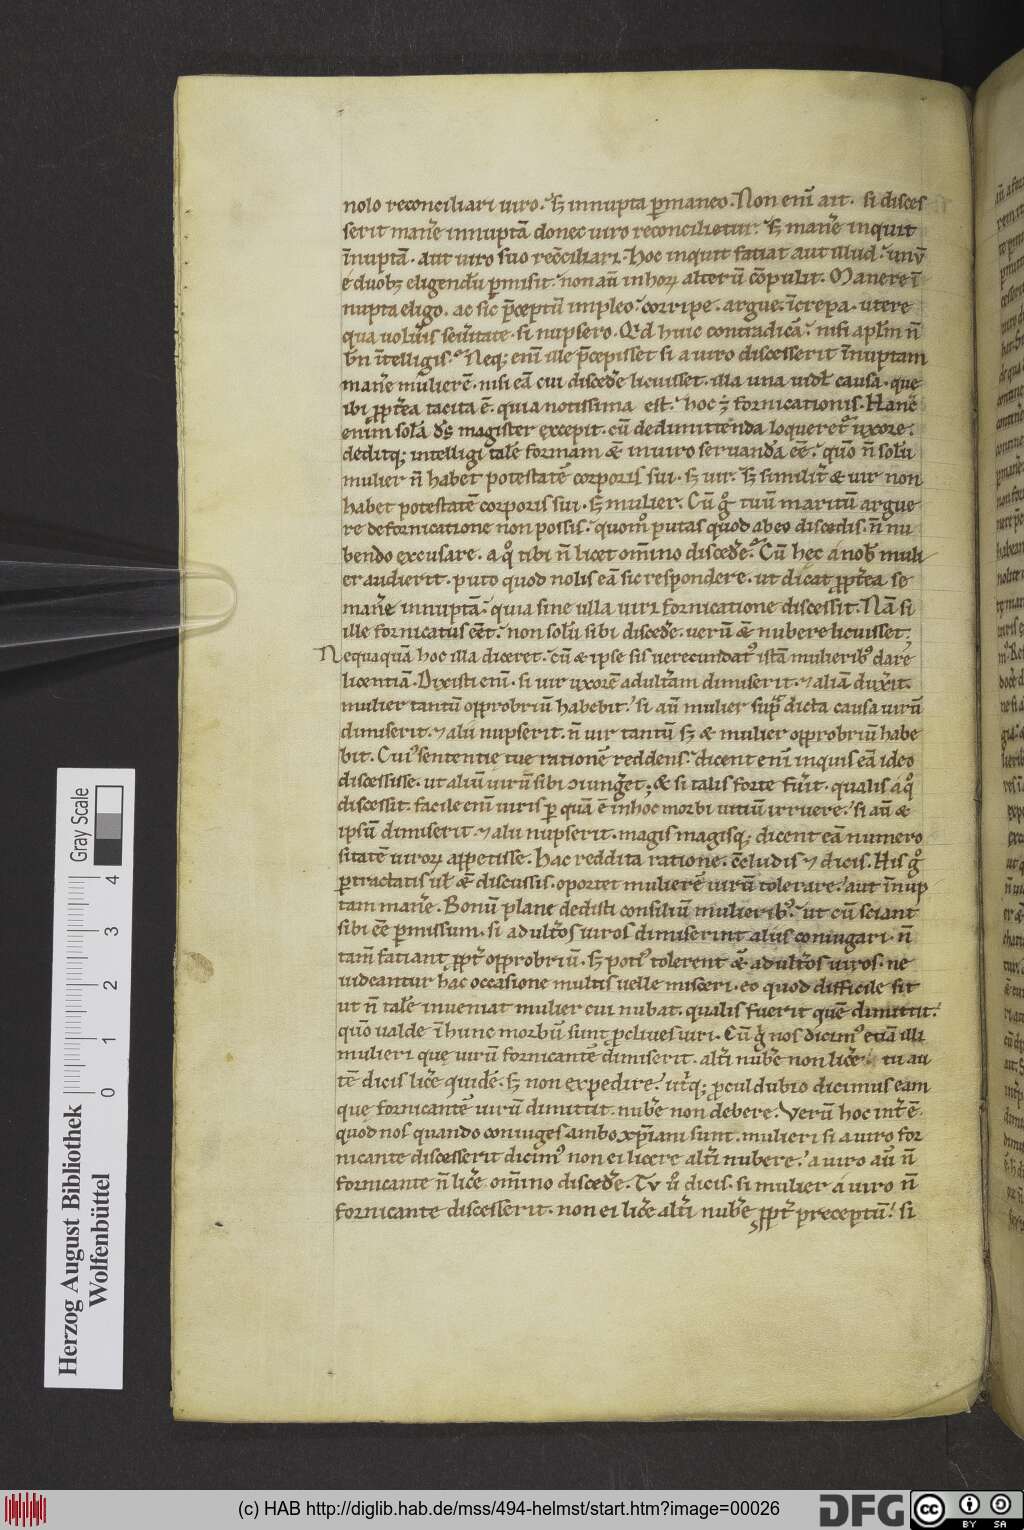 nolo reconciliari uiro. sꝫ innupta ꝑmaneo. Non eni ait. si disces
serit man̄e innuptā donec uiro reconcilietur. sꝫ man̄e inquit
īnuptā. aut uiro suo recc̄iliari. hoc inquit fatiat aut illud. unū
e duobꝫ eligendū ꝑmisit. non aū in horꝝ alterū cōpulit. Manere ī
nupta eligo. ac sic p̄ceptū impleo. corripe. argue. īcrepa. utere
qua uolueris seu̓itate. si nupsero. Qd huic contradicā. nisi apl̄m n̄
bn̄ ītelligis. Neqꝫ enī ille p̄cepisset si a uiro discesserit īnuptam
man̄e mulierē. nisi eā cui disced̄e licuisset. illa una uidꝉ causa. que
ibi ꝓpt̓ea tacita ē. quia notissima est. hoc ꝫ fornicationis. Hanc
enim solā dꝰ magister excepit. cū de dimittenda loqueret̓ uxore.
deditqꝫ intelligi talē formam & in uiro seruandā eē. quō n̄ solū
mulier n̄ habet potestatē corporis sui. sꝫ uir. sꝫ similit̓ & uir non
habet potestatē corporis sui. sꝫ mulier. Cū gͦ tuū maritū argue
re de fornicatione non possis. quomͦ putas quod ab eo discedis. n̄ nu
bendo excusare. a qͦ tibi n̄ licet om̄ino disced̄e. Cū hec a nob̄ muli
er audierit. puto quod nolis eā sic respondere. ut dicat ꝓpt̓ea se
man̄e innuptā. quia sine ulla uiri fornicatione discessit. Nā si
ille fornicatus eēt. non solū sibi disced̄e. uerū & nubere licuisset.
Nequaquā hoc illa diceret. cū & ipse sis uerecundatꝰ istā mulieribꝰ dare
licentiā. Dixisti enī. si uir uxorē adult̓am dimiserit. ⁊ aliā dux̓it.
mulier tantū opprobriū habebit. si aū mulier sup̄ dicta causa uirū
dimiserit. ⁊ alii nupserit. n̄ uir tantū sꝫ & mulier opprobriū habe
bit. Cuiꝰ sententie tue rationē reddens. dicent enī inquis eā ideo
discessisse. ut aliū uirū sibi ꝯiung̓et. & si talis forte fu̓it. qualis a qͦ
discessit. facile enī uiris ꝑ quā ē in hoc morbi uitiū irruere. si aū &
ipsū dimiserit ⁊ alii nupserit. magis magisqꝫ dicent eā numero
sitatē uirorꝝ appetisse. hac reddita ratione. c̄cludis ⁊ dicis. His gͦ
ꝑtractatis uꝉ & discussis. oportet mulierē uirū tolerare. aut īnup
tam man̄e. Bonū plane dedisti consiliū mulieribꝰ. ut cū sciant
sibi eē ꝑmissum. si adult̓os uiros dimiserint aliis coniugari. n̄
tam̄ fatiant ꝓpt̓ opprobriū. sꝫ potiꝰ tolerent & adult̓os uiros. ne
uideantur hac occasione multis uelle misceri. eo quod difficile sit
ut n̄ talē inueniat mulier cui nubat. qualis fuerit quē dimittit.
quō ualde ī hunc morbū sunt ꝓcliues uiri. Cū gͦ nos dicimꝰ etiā illi
mulieri que uirū fornicantē dimiserit. alt̓i nub̄e non lic̄e. tu au
tē dicis lic̄e quidē. sꝫ non expedire. ut̓qꝫ ꝓcul dubio dicimus eam
que fornicantē uirū dimittit. nub̄e non debere. Verū hoc int̓ ē.
quod nos quando coniuges ambo xp̄iani sunt. mulieri si a uiro for
nicante discesserit dicimꝰ non ei licere alt̓i nubere. a uiro aū n̄
fornicante n̄ lic̄e om̄ino disced̄e. Tu uͦ dicis. si mulier a uiro n̄
fornicante discesserit. non ei lic̄e alt̓i nub̄e ꝓpt̓ preceptū. si
Herzog August Bibliothek
Wolfenbüttel
Gray Scale
0 1 2 3 4
(c) HAB http://diglib.hab.de/mss/494-helmst/start.htm?image=00026
DFG
cc BY SA